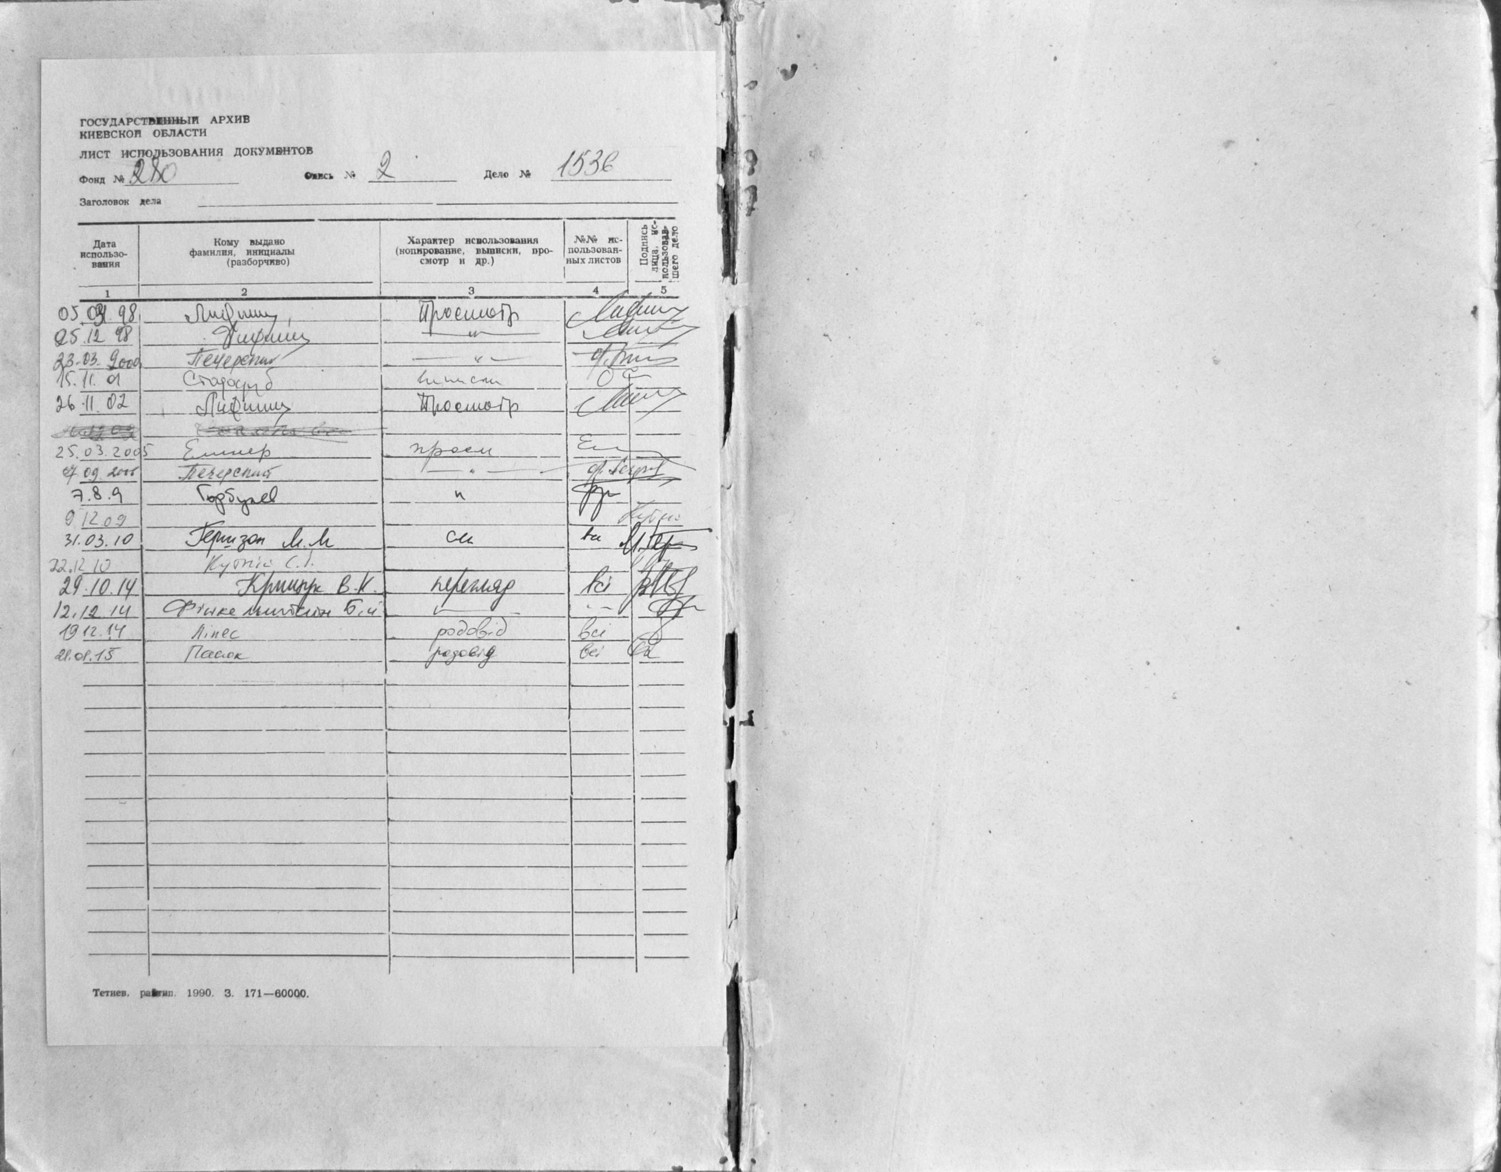 ГОСУДАРСТВЕННЫЙ АРХИВ
КИЕВСКОЙ ОБЛАСТИ
ЛИСТ ИСПОЛЬЗОВАНИЯ ДОКУМЕНТОВ
Фонд № 280 Опись № 2 Дело № 1536
Заголовок дела
Дата использования Кому выдано фамилия, инициалы (разборчиво) Характер использования (копирование, выписки, просмотр и др.) №№ использованных листов Подпись лица, использовавшего дело
1 2 3 4 5
98 Лифшиц Просмотр
25.12 98 Лифшиц —"—
23.03.2000 Печерский —"—
15.11.01 Стародуб выписки
26.11.02 Лифшиц Просмотр
25.03.2005 просм
2005 Печерский —"—
7.8.9 Горбулев "
9.12.09
31.03.10 Герцзон М.М см
22.12.10 С.І.
29.10.14 В.К. перегляд всі
12.12.14
19.12.14 Ліпес родовід всі
28.08.15 Пасюк родовід всі
Тетиев. райтип. 1990. З. 171—60000.